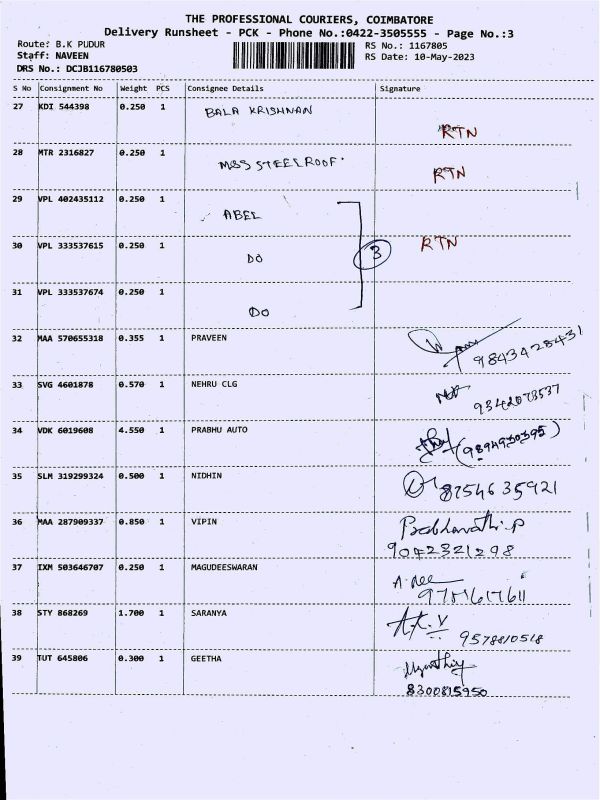 THE PROFESSIONAL COURIERS, COIMBATORE
Delivery Runsheet - PCK - Phone No.:0422-3505555 - Page No.:3
Route: B.K PUDUR RS No.: 1167805
Staff: NAVEEN RS Date: 10-May-2023
DRS No.: DCJB116780503
S No Consignment No Weight PCS Consignee Details Signature
27 KDI 544398 0.250 1 BALA KRISHNAN RTN
28 MTR 2316827 0.250 1 MSS STEELROOF RTN
29 VPL 402435112 0.250 1 ABEL
30 VPL 333537615 0.250 1 DO 3 RTN
31 VPL 333537674 0.250 1 DO
32 MAA 570655318 0.355 1 PRAVEEN 9843428431
33 SVG 4601878 0.570 1 NEHRU CLG 9342073537
34 VDK 6019608 4.550 1 PRABHU AUTO (9894930395)
35 SLM 319299324 0.500 1 NIDHIN 8754635921
36 MAA 287909337 0.850 1 VIPIN Prabhavathi.P
9042321298
37 IXM 503646707 0.250 1 MAGUDEESWARAN
38 STY 868269 1.700 1 SARANYA 9578810518
39 TUT 645806 0.300 1 GEETHA
8300815950